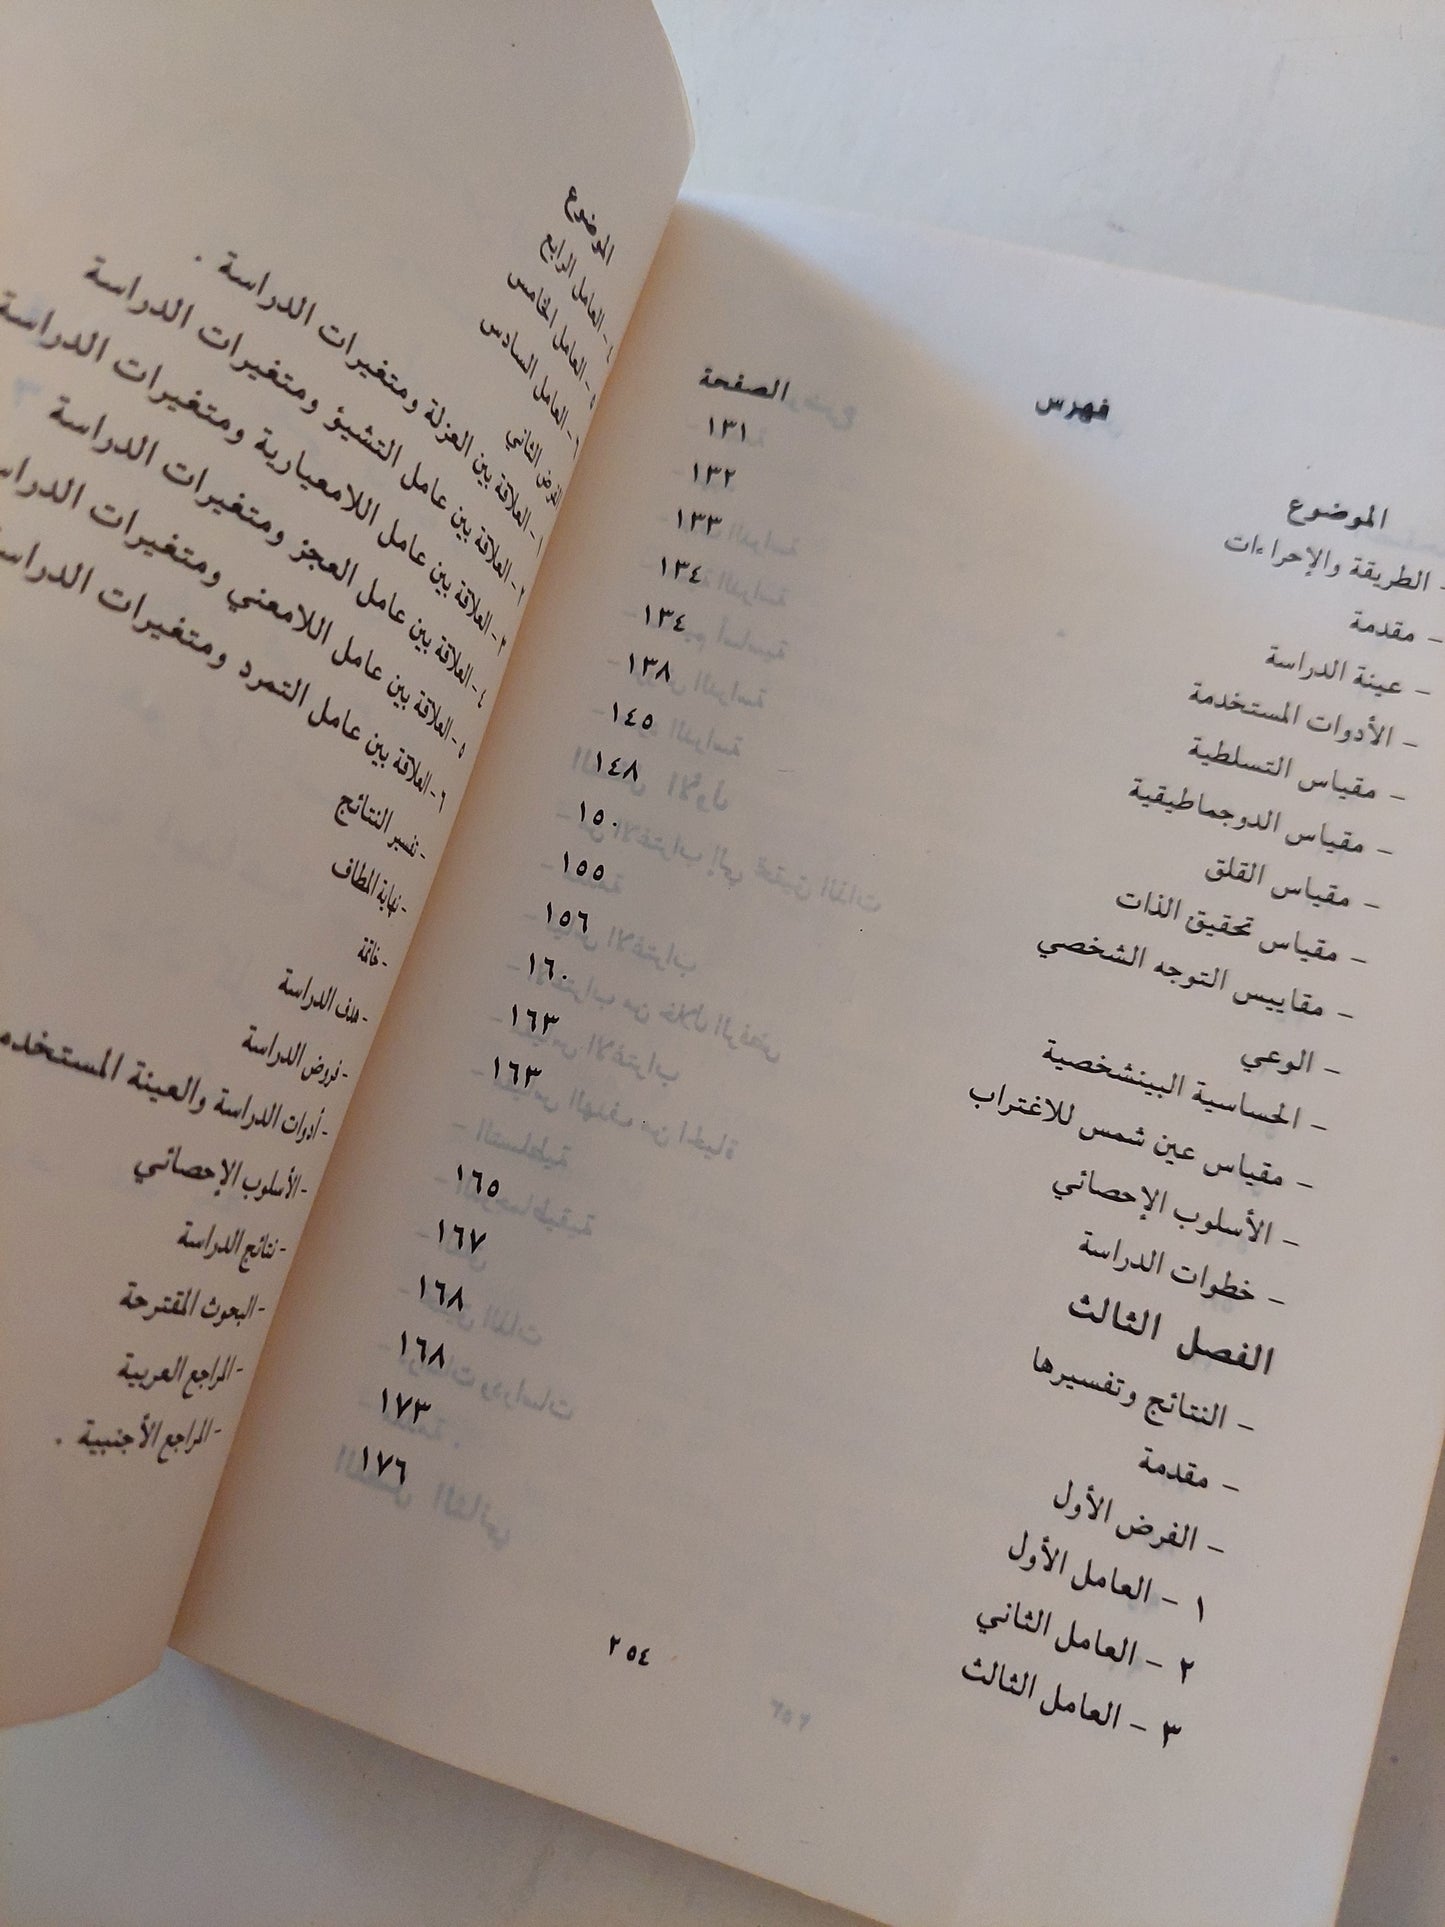 فهرس
الموضوع الصفحة
- الطريقة والإجراءات ١٣١
- مقدمة ١٣٢
- عينة الدراسة ١٣٣
- الأدوات المستخدمة ١٣٤
- مقياس التسلطية ١٣٤
- مقياس الدوجماطيقية ١٣٨
- مقياس القلق ١٤٥
- مقياس تحقيق الذات ١٤٨
- مقاييس التوجه الشخصي ١٥٠
- الوعي ١٥٥
- الحساسية البينشخصية ١٥٦
- مقياس عين شمس للاغتراب ١٦٠
- الأسلوب الإحصائي ١٦٣
- خطوات الدراسة ١٦٣
الفصل الثالث
- النتائج وتفسيرها ١٦٥
- مقدمة ١٦٧
- الفرض الأول ١٦٨
١ - العامل الأول ١٦٨
٢ - العامل الثاني ١٧٣
٣ - العامل الثالث ١٧٦
٢٥٤
الموضوع
٤ - العامل الرابع
٥ - العامل الخامس
٦ - العامل السادس
الفرض الثاني
١ - العلاقة بين العزلة ومتغيرات الدراسة .
٢ - العلاقة بين عامل التشيؤ ومتغيرات الدراسة
٣ - العلاقة بين عامل اللامعيارية ومتغيرات الدراسة
٤ - العلاقة بين عامل العجز ومتغيرات الدراسة
٥ - العلاقة بين عامل اللامعني ومتغيرات
٦ - العلاقة بين عامل التمرد ومتغيرات
- تفسير النتائج
- نهاية المطاف
- خاتمة
- هدف الدراسة
- فروض الدراسة
- أدوات الدراسة والعينة
- الأسلوب الإحصائي
- نتائج الدراسة
- البحوث المقترحة
- المراجع العربية
- المراجع الأجنبية .